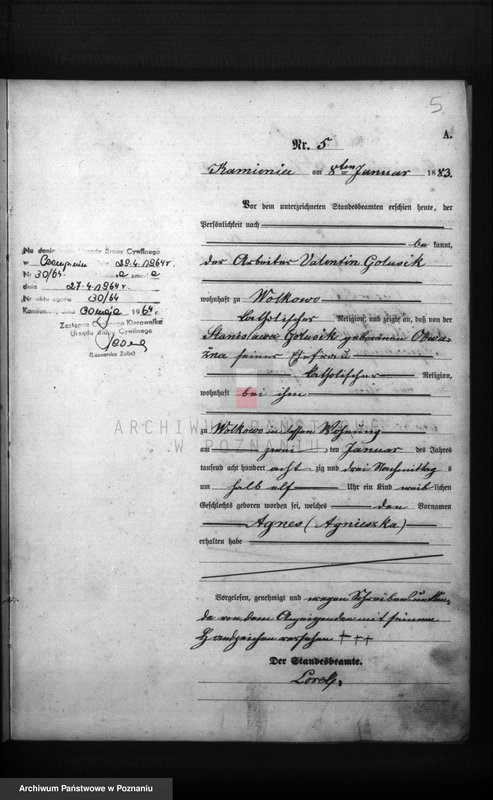 5.
A.
Nr. 5
Kamionice am 8ten Januar 1883.
Vor dem unterzeichneten Standesbeamten erschien heute, der
Persönlichkeit nach
be kannt,
der Arbeiter Valentin Golusik
wohnhaft zu Wolkowo
katholischer Religion, und zeigte an, daß von der
Stanislawa Golusik geborenen
seiner Ehefrau
katholischer Religion,
wohnhaft bei ihm
zu Wolkowo in dessen Wohnung
am zwei ten Januar des Jahres
tausend acht hundert acht zig und drei Nachmittag s
um halb elf Uhr ein Kind weib lichen
Geschlechts geboren worden sei, welches den Vornamen
Agnes (Agnieszka)
erhalten habe
Vorgelesen, genehmigt und wegen Schreibensunkun-
de von dem Anzeigenden mit seinem
Handzeichen versehen +++
Der Standesbeamte.
Urzędu Stanu Cywilnego
w dnia 29.4.1964 r.
Nr 30/64 zmarł a
dnia 27.4.1964 r.
Nr aktu zgonu 30/64
maja 1964 r.
Zastępca Kierownika
Urzędu Stanu Cywilnego
ARCHIWUM PAŃSTWOWE
W POZNANIU
Archiwum Państwowe w Poznaniu